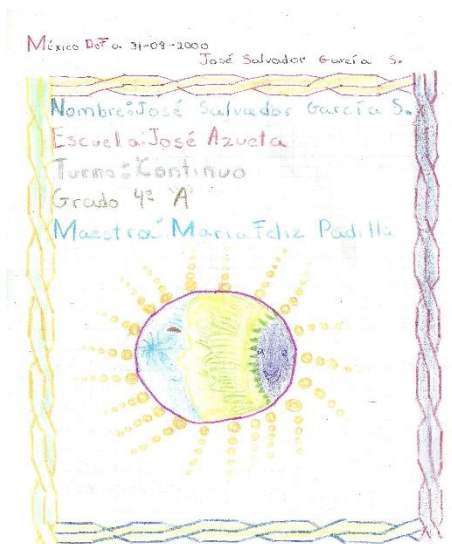 México D.F a 31-08-2000
José Salvador García S.
Nombre: José Salvador García S.
Escuela: José Azueta
Turno: Continuo
Grado 4º "A"
Maestra: Maria Feliz Padilla